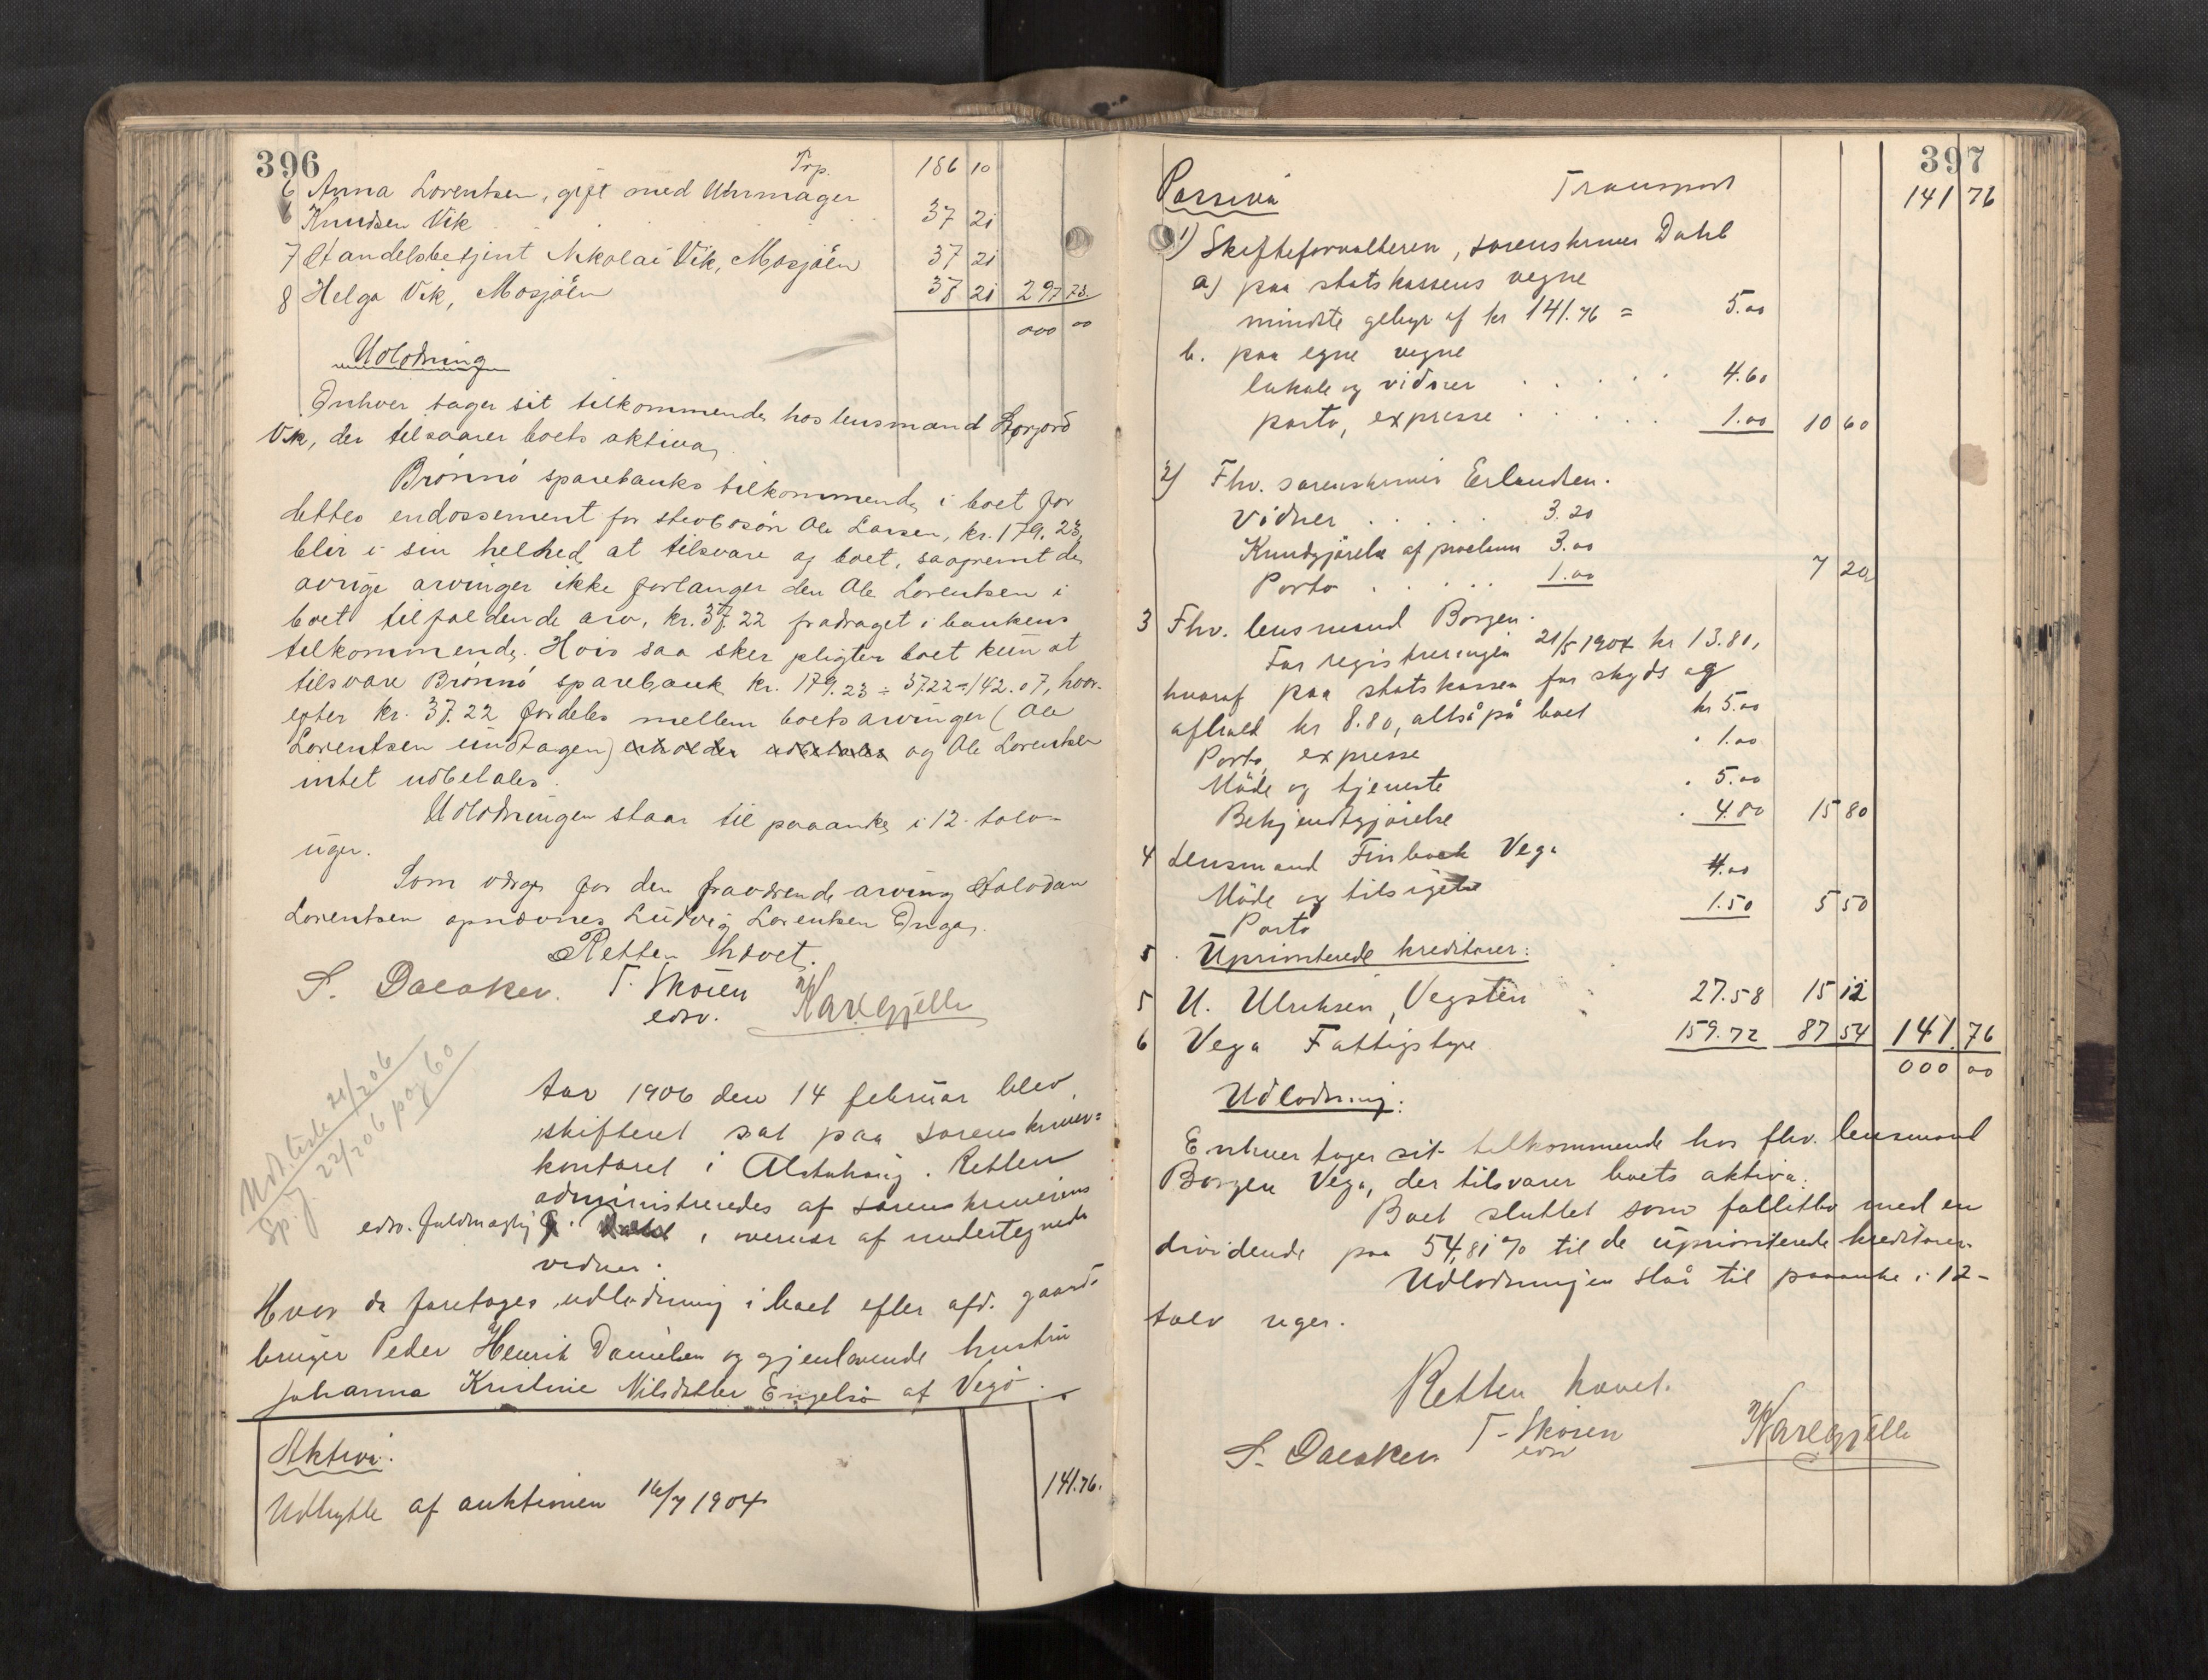 396
Trp. 186 10
6 Anna Lorentsen, gift med Uhrmager
Knudsen Vik 37 21
7 Handelsbetjent Nikolai Vik, Mosjöen 37 21
8 Helga Vik, Mosjöen 37 21 297 73
000 00
Udlodning
Enhver tager sit tilkommende hos lensmand
Vik, der tilsvarer boets aktiva.
Brönnö sparebanks tilkommende i boet for
dettes endossement for sterbosön Ole Larsen, kr. 179.23,
blir i sin helhed at tilsvare af boet, saafremt de
övrige arvinger ikke forlanger den Ole Lorentsen i
boet tilfaldende arv, kr. 37.22 fradraget i bankens
tilkommende. Hvis saa sker pligter boet kun at
tilsvare Brönnö sparebank kr. 179.23 ÷ 37.22 = 142.07, hvor-
efter kr. 37.22 fordeles mellem boets arvinger (Ole
Lorentsen undtagen) og Ole Lorentsen
intet udbetales.
Udlodningen staar til paaanke i 12- tolv-
uger.
Som værge for den fraværende arving Halvdan
Lorentsen opnævnes Ludvig Lorentsen
Retten hævet.
T. Skören
edsv.
Ud.liste 21/2 06
Sp.j. 22/2 06 pag 60
Aar 1906 den 14 februar blev
skifteret sat paa sorenskriver=
kontoret i Alstahaug. Retten
administreredes af sorenskriverens
edsv. fuldmægtig , i overvær af undertegnede
vidner.
Hvor da foretoges udlodning i boet efter afd. gaard-
bruger Peder Henrik Danielsen og gjenlevende hustru
Johanna Kristine Nilsdatter Engelsö af Vegö.
Aktiva.
Udbytte af auktionen 16/7 1904 141.76.
397
Passiva Transport 141 76
1) Skifteforvalteren, sorenskriver Dahl
a) paa statskassens vegne
mindste gebyr af kr 141.76 = 5.00
b. paa egne vegne
lokale og vidner . . . . . 4.60
porto, expresse . . . . . 1.00 10 60
2) Fhv. sorenskriver Erlandsen.
Vidner . . . . . 3.20
Kundgjörelse af proclama 3.00
Porto . . . . . 1.00 7 20
3 Fhv. lensmand Borgen.
For registreringen 21/5 1904 kr 13.80,
hvoraf paa statskassen for skyds og
afholdt kr 8.80, altså på boet kr 5.00
Porto, expresse " 1.00
Möde og tjeneste " 5.00
Bekjendtgjörelse " 4.80 15 80
4 Lensmand Finbach Vega
Möde og tilsigelse 4.00
Porto 1.50 5 50
5 Uprioriterede kreditorer:
5 U. Ulriksen, Vegstein 27.58 15 12
6 Vega Fattigstyre 159.72 87 54 141.76
000 00
Udlodning:
Enhver tager sit tilkommende hos fhv. lensmand
Borgen Vega, der tilsvarer boets aktiva.
Boet sluttet som fallitbo med en
dividende paa 54,81 % til de uprioriterede kreditorer.
Udlodningen står til paaanke i 12-
tolv uger.
Retten hævet.
T. Skören
edsv